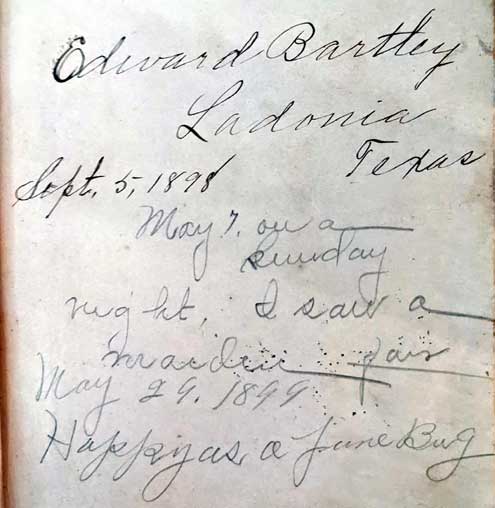 Edward Bartley
Ladonia
Texas
Sept. 5, 1898
May 7, on a
Sunday
night, I saw a
maiden fair
May 29, 1899
Happy as a June Bug